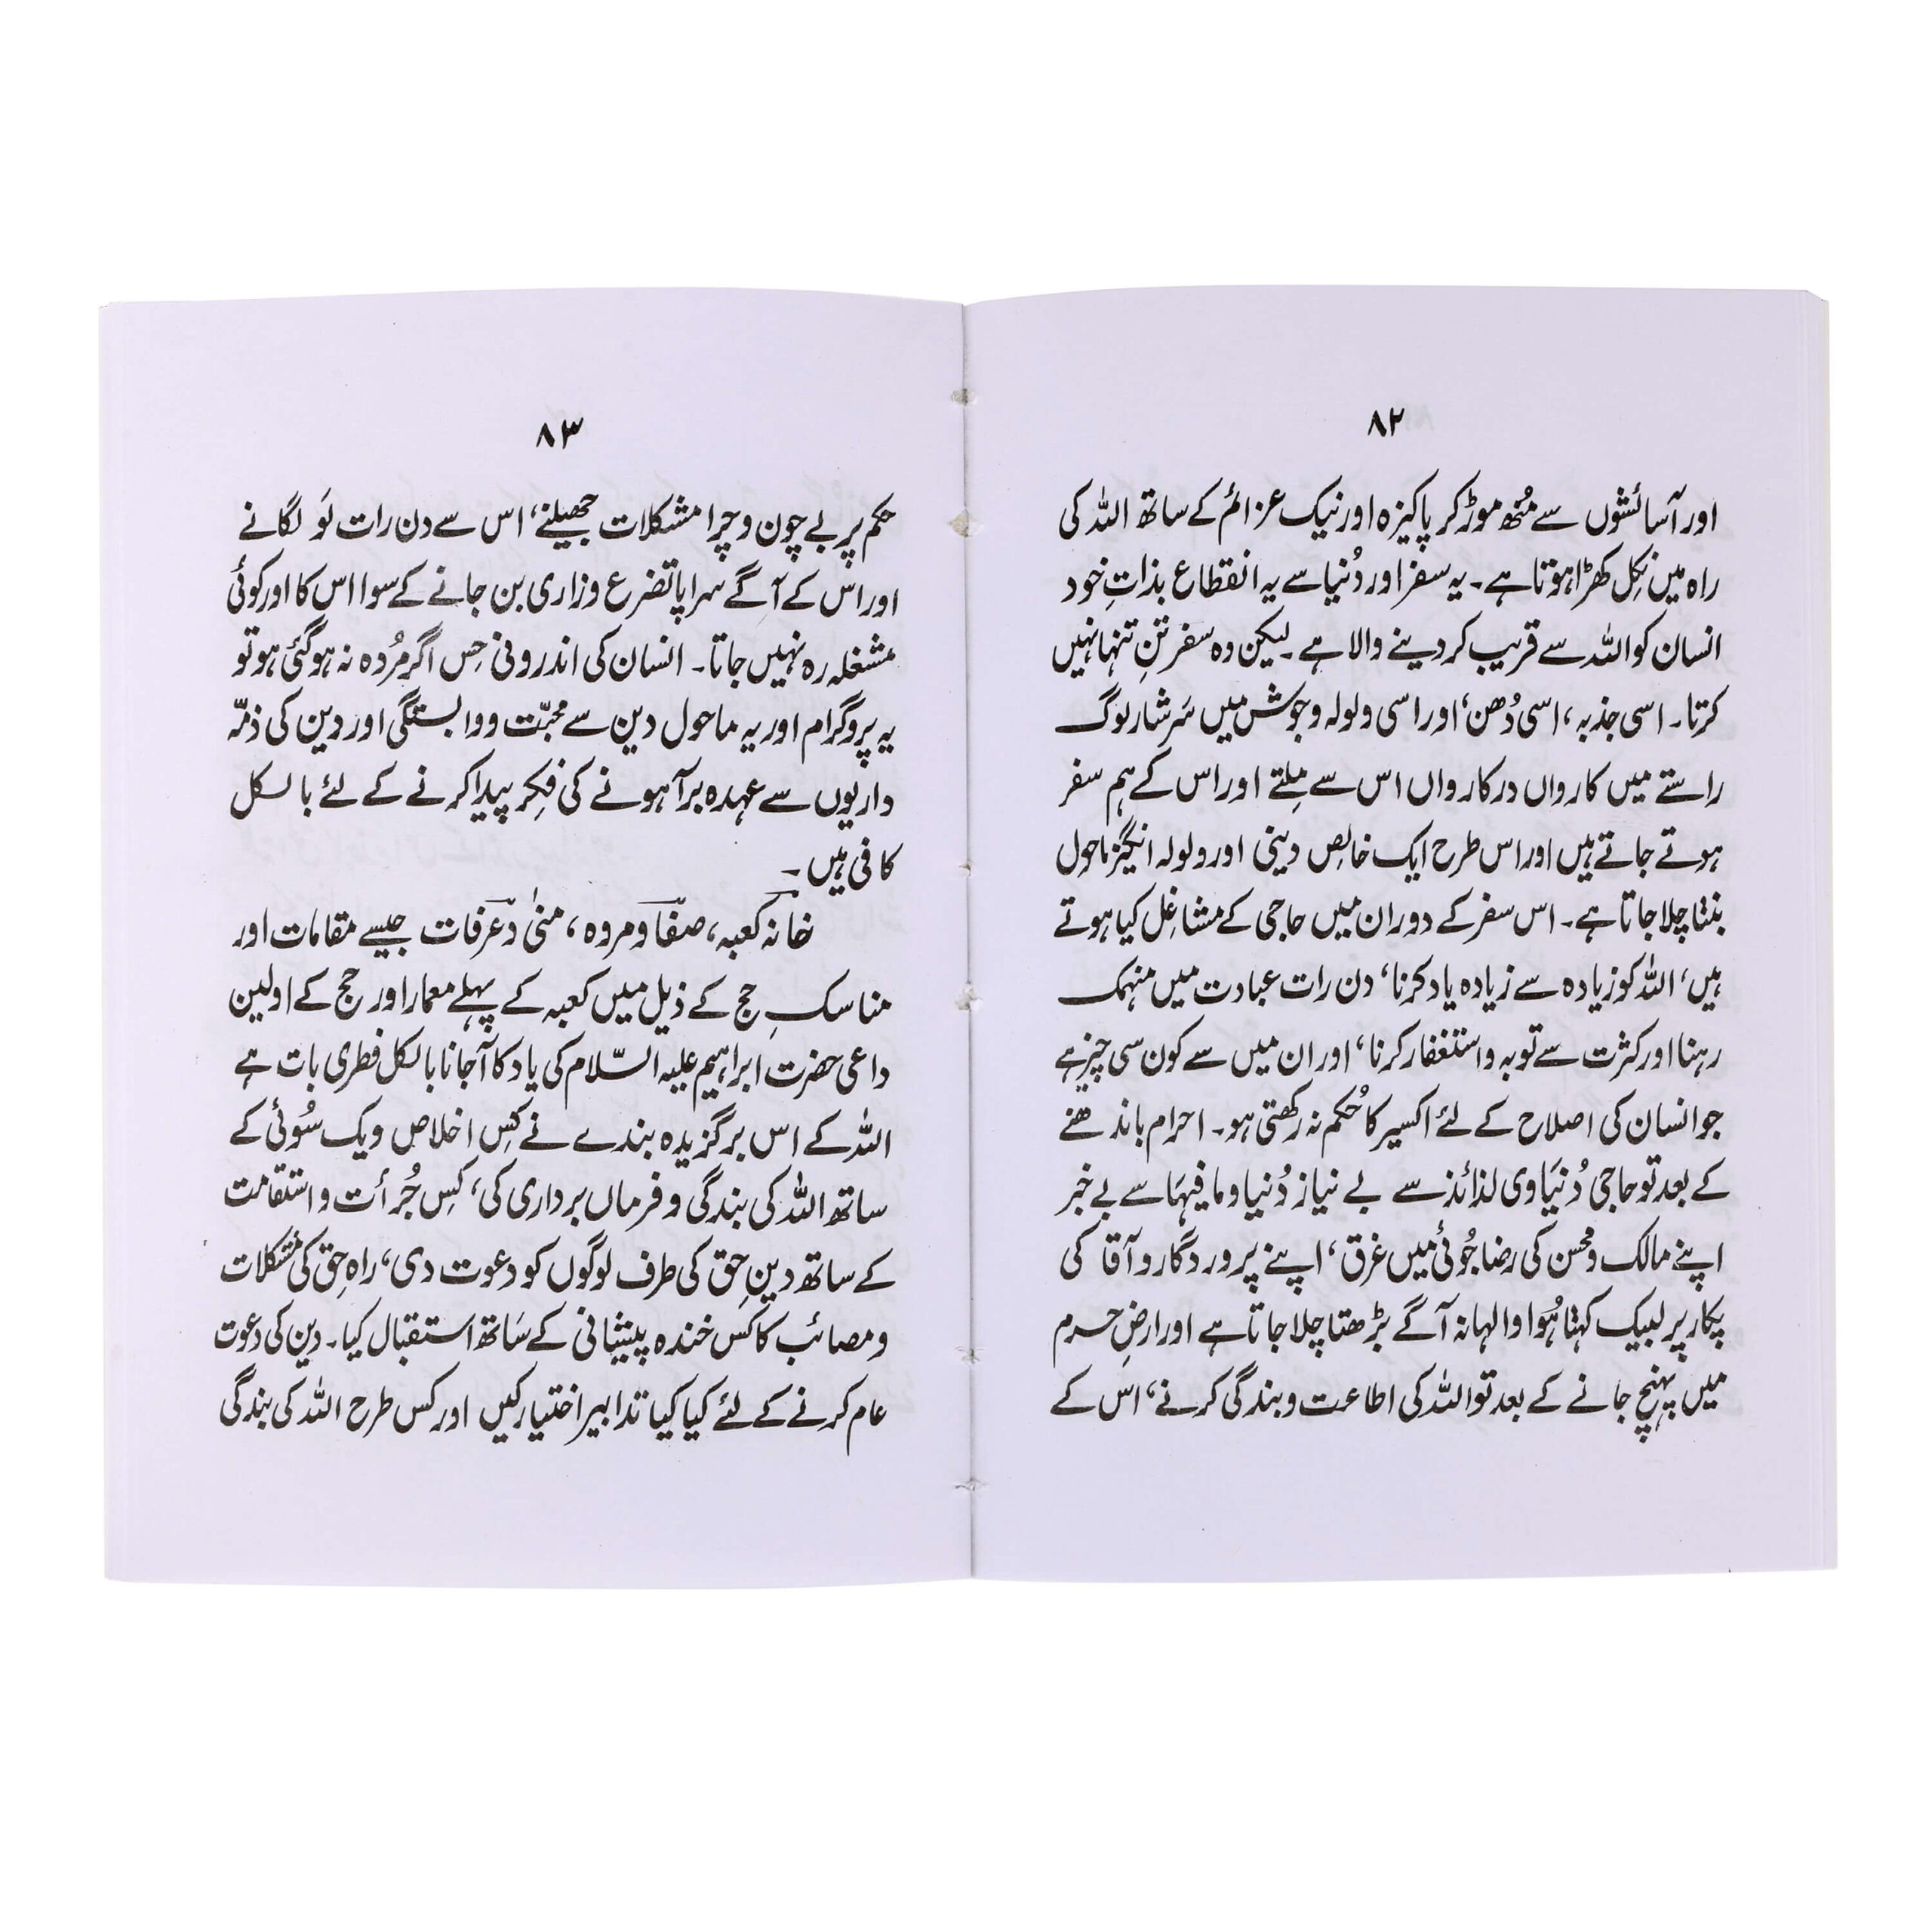 ۸۲
اور آسائشوں سے مُنھ موڑ کر پاکیزہ اور نیک عزائم کے ساتھ اللہ کی
راہ میں نِکل کھڑا ہوتا ہے۔ یہ سفر اور دُنیا سے یہ انقطاع بذاتِ خود
انسان کو اللہ سے قریب کر دینے والا ہے۔ لیکن وہ سفر تنِ تنہا نہیں
کرتا۔ اسی جذبہ، اسی دُھن، اور اسی ولولہ و جوش میں سَرشار لوگ
راستے میں کارواں در کارواں اس سے مِلتے اور اس کے ہم سفر
ہوتے جاتے ہیں اور اس طرح ایک خالِص دینی اور ولولہ انگیز ماحول
بنتا چلا جاتا ہے۔ اس سفر کے دوران میں حاجی کے مشاغِل کیا ہوتے
ہیں، اللہ کو زیادہ سے زیادہ یاد کرنا، دن رات عبادت میں منہمک
رہنا اور کثرت سے توبہ و استغفار کرنا، اور ان میں سے کون سی چیز ہے
جو انسان کی اصلاح کے لئے اکسیر کا حُکم نہ رکھتی ہو۔ احرام باندھنے
کے بعد تو حاجی دُنیَاوی لذائذ سے بے نیاز دُنیا و ما فیہَا سے بے خبر
اپنے مالک و محسن کی رضا جُوئی میں غرق، اپنے پروردگار و آقا کی
پکار پر لبیک کہتا ہُوا والہانہ آگے بڑھتا چلا جاتا ہے اور ارضِ حرم
میں پہنچ جانے کے بعد تو اللہ کی اطاعت و بندگی کرنے، اس کے
۸۳
حکم پر بے چون و چرا مشکلات جھیلنے، اس سے دن رات لَو لگانے
اور اس کے آگے سراپا تضرع و زاری بن جانے کے سوا اس کا اور کوئی
مشغلہ رہ نہیں جاتا۔ انسان کی اندرونی حِس اگر مُردہ نہ ہو گئی ہو تو
یہ پروگرام اور یہ ماحول دین سے محبّت و وابستگی اور دین کی ذمّہ
داریوں سے عہدہ برآ ہونے کی فِکر پیدا کرنے کے لئے بالکل
کافی ہیں۔
خانہ کعبہ، صفا و مروہ، منیٰ و عرفات جیسے مقامات اور
مناسکِ حج کے ذیل میں کعبہ کے پہلے معمار اور حج کے اولین
داعی حضرت ابراہیم علیہ السّلام کی یاد کا آجانا بالکل فطری بات ہے
اللہ کے اس برگزیدہ بندے نے کِس اخلاص و یک سُوئی کے
ساتھ اللہ کی بندگی و فرماں برداری کی، کِس جُرأت و استقامت
کے ساتھ دینِ حق کی طرف لوگوں کو دعوت دی، راہِ حق کی مُشکلات
و مصائب کا کس خندہ پیشانی کے سَاتھ استقبال کیا۔ دین کی دعوت
عام کرنے کے لئے کیا کیا تدابیر اختیار کیں اور کس طرح اللہ کی بندگی